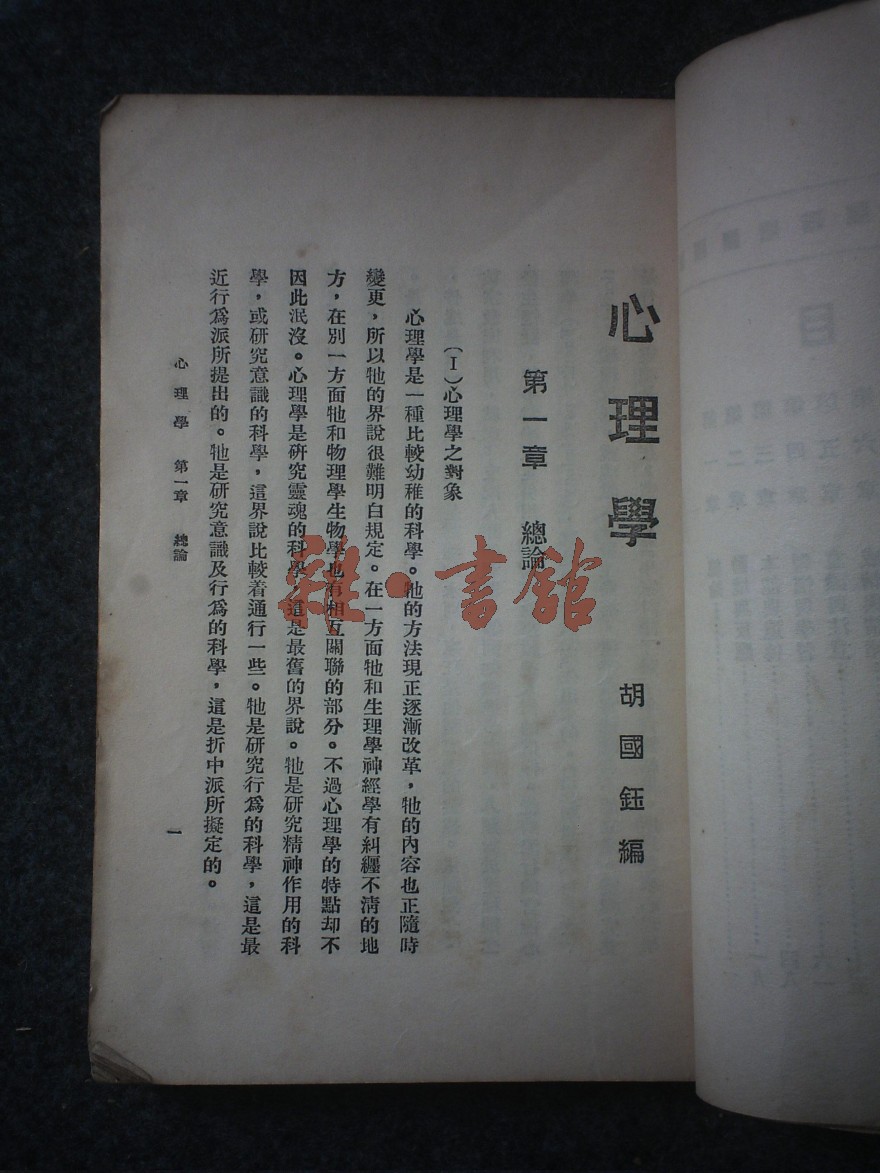 目
心理學
胡國鈺編
第一章 總論
(I)心理學之對象
心理學是一種比較幼稚的科學。牠的方法現正逐漸改革，牠的內容也正隨時
變更，所以牠的界說很難明白規定。在一方面牠和生理學神經學有糾纏不清的地
方，在別一方面牠和物理學生物學也有相互關聯的部分。不過心理學的特點却不
因此泯沒。心理學是研究靈魂的科學，這是最舊的界說。牠是研究精神作用的科
學，或研究意識的科學，這界說比較着通行一些。牠是研究行爲的科學，這是最
近行爲派所提出的。牠是研究意識及行爲的科學，這是折中派所擬定的。
心理學 第一章 總論
一
雜·書館